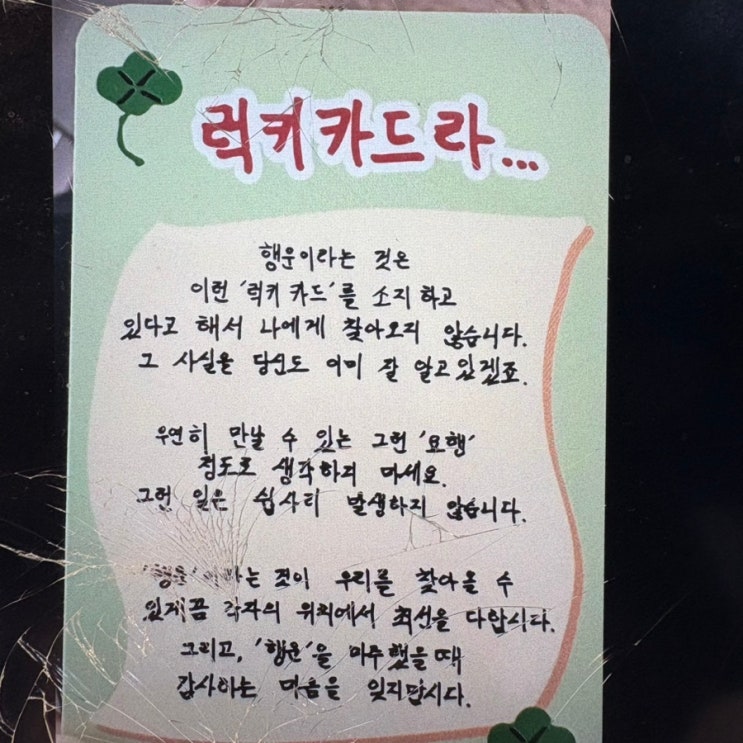 럭키카드라...
행운이라는 것은
이런 '럭키 카드'를 소지하고
있다고 해서 나에게 찾아오지 않습니다.
그 사실을 당신도 이미 잘 알고 있겠죠.
우연히 만날 수 있는 그런 '요행'
정도로 생각하지 마세요.
그런 일은 쉽사리 발생하지 않습니다.
'행운'이라는 것이 우리를 찾아올 수
있게끔 각자의 위치에서 최선을 다합시다.
그리고, '행운'을 마주했을 때
감사하는 마음을 잊지맙시다.